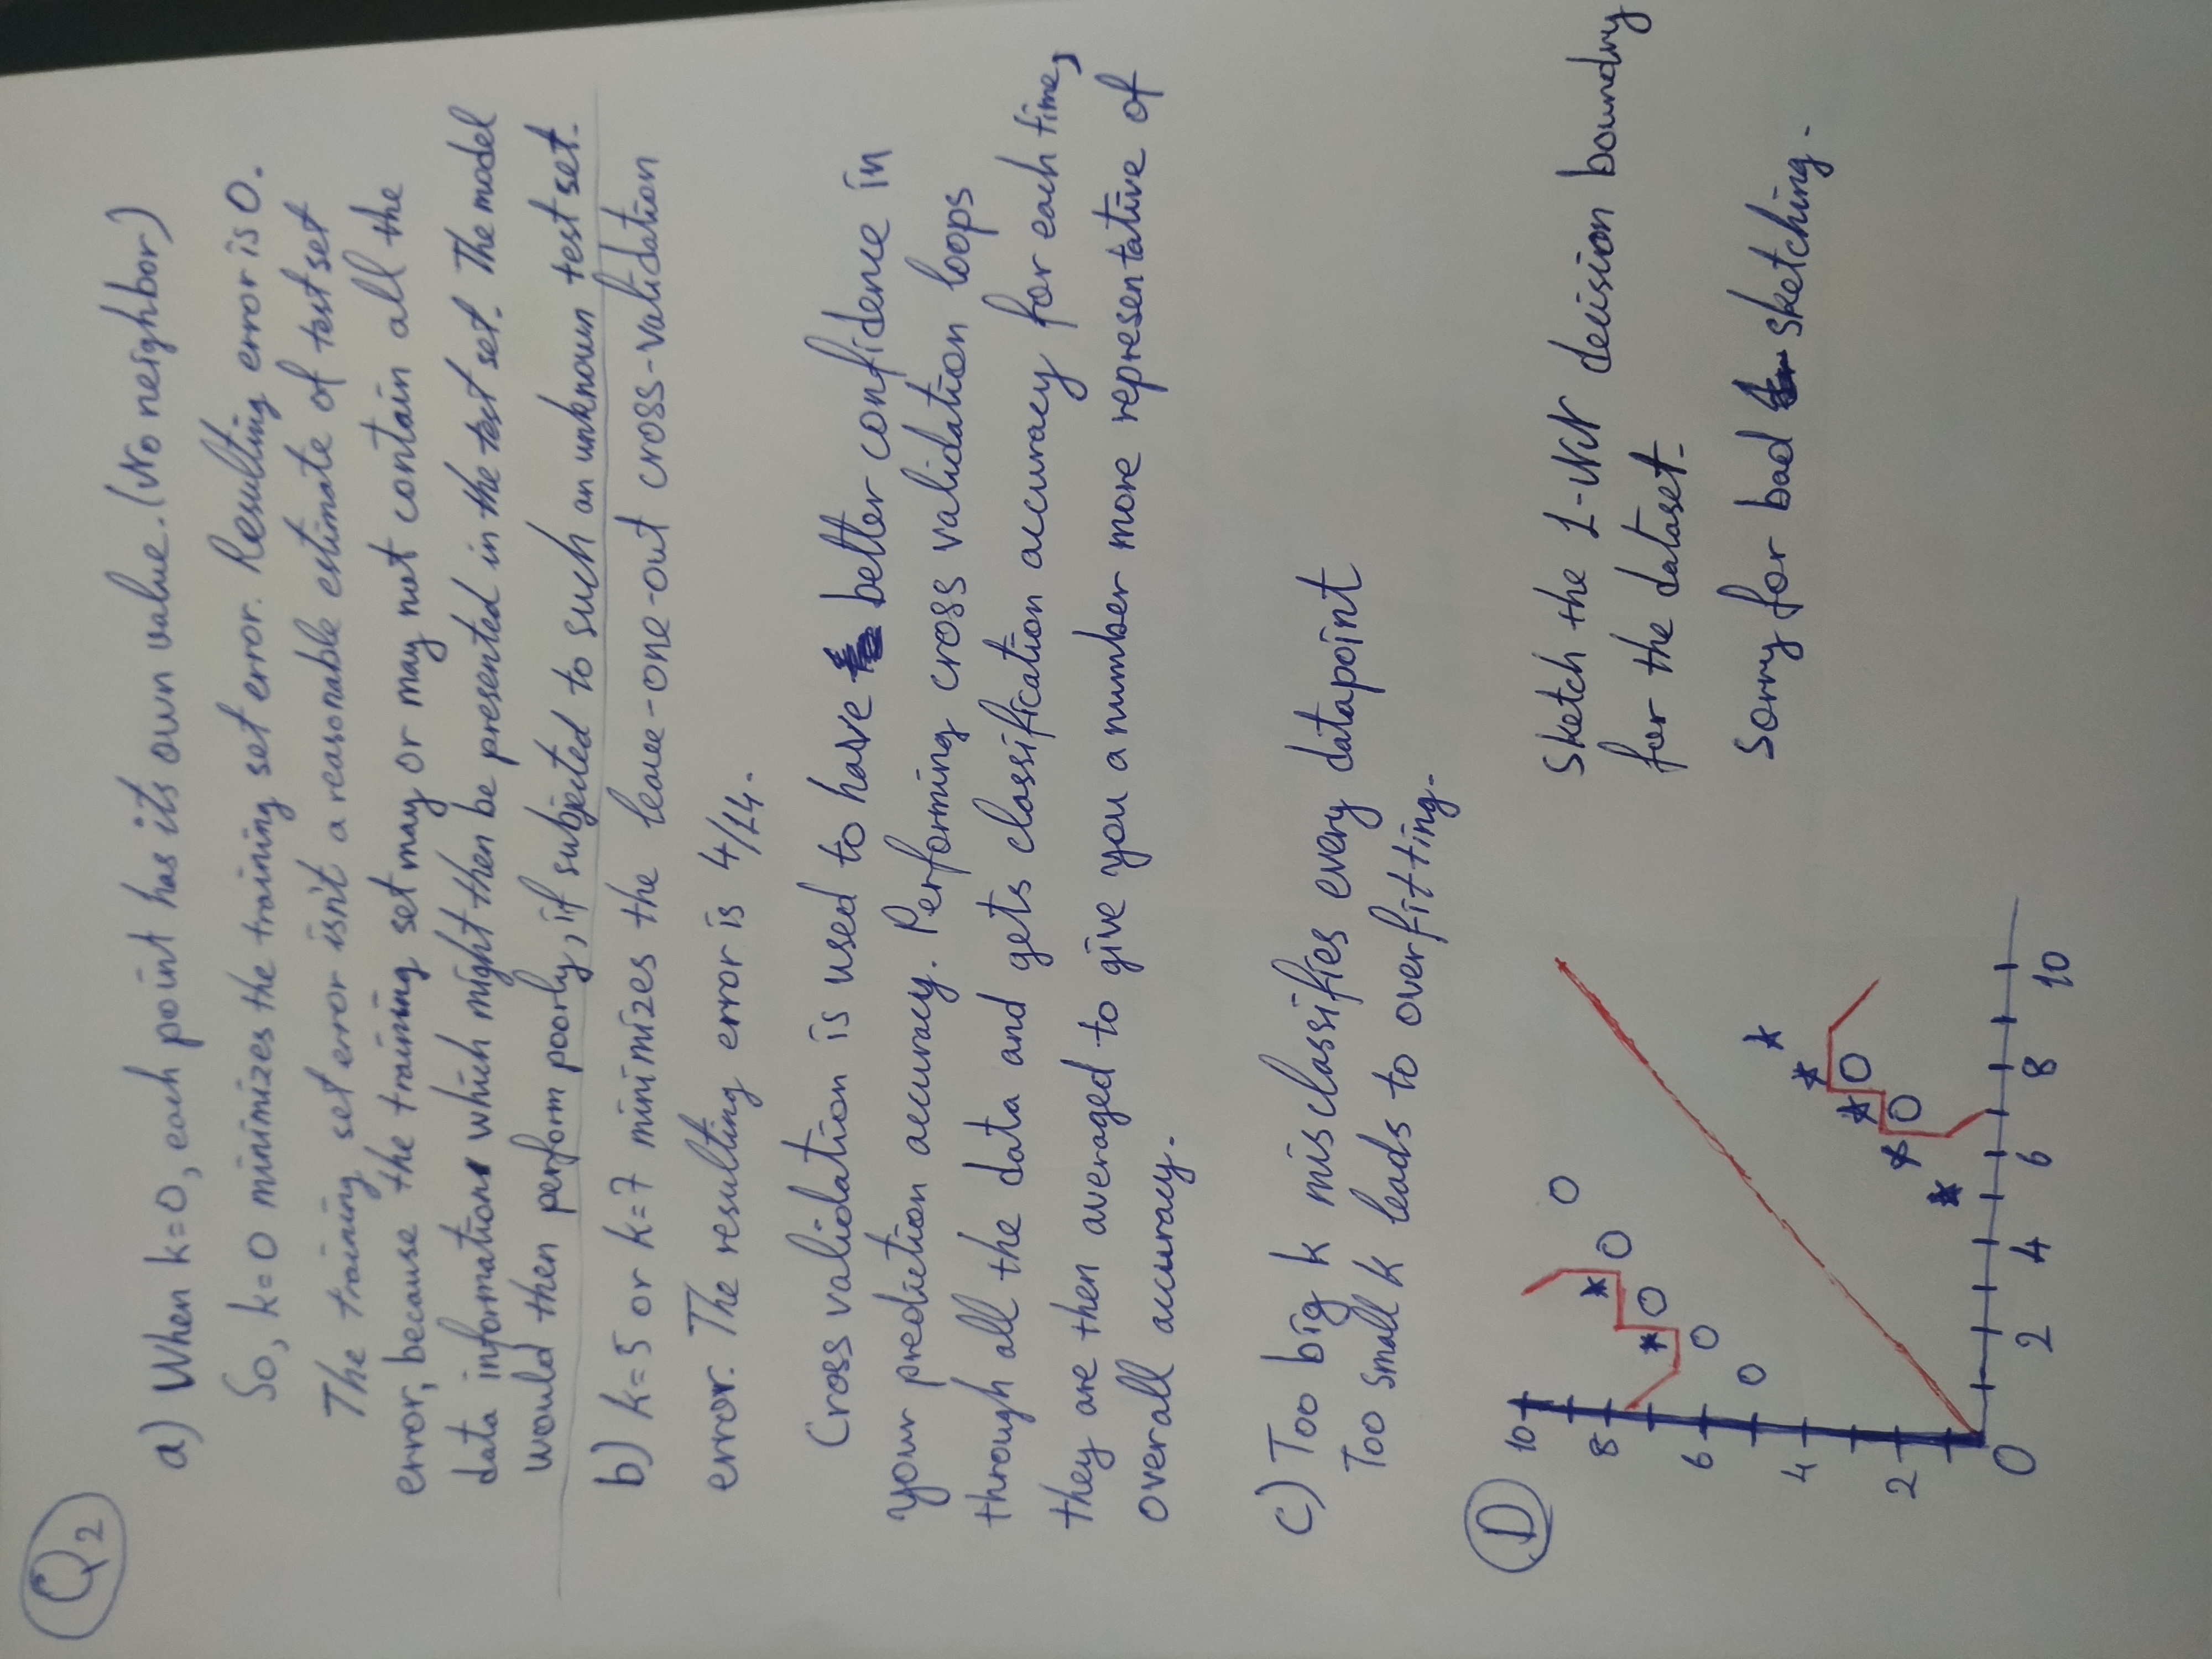 Q2
a) When k=0, each point has its own value. (No neighbor)
So, k=0 minimizes the training set error. Resulting error is 0.
The training set error isn't a reasonable estimate of test set
error, because the training set may or may not contain all the
data information which might then be presented in the test set. The model
would then perform poorly, if subjected to such an unknown test set.
b) k=5 or k=7 minimizes the leave-one-out cross-validation
error. The resulting error is 4/14.
Cross validation is used to have better confidence in
your prediction accuracy. Performing cross validation loops
through all the data and gets classification accuracy for each time,
they are then averaged to give you a number more representative of
overall accuracy.
c) Too big k misclassifies every datapoint
Too small k leads to overfitting.
D
10
8
6
4
2
0
2 4 6 8 10
Sketch the 1-NN decision boundry
for the dataset.
Sorry for bad sketching.